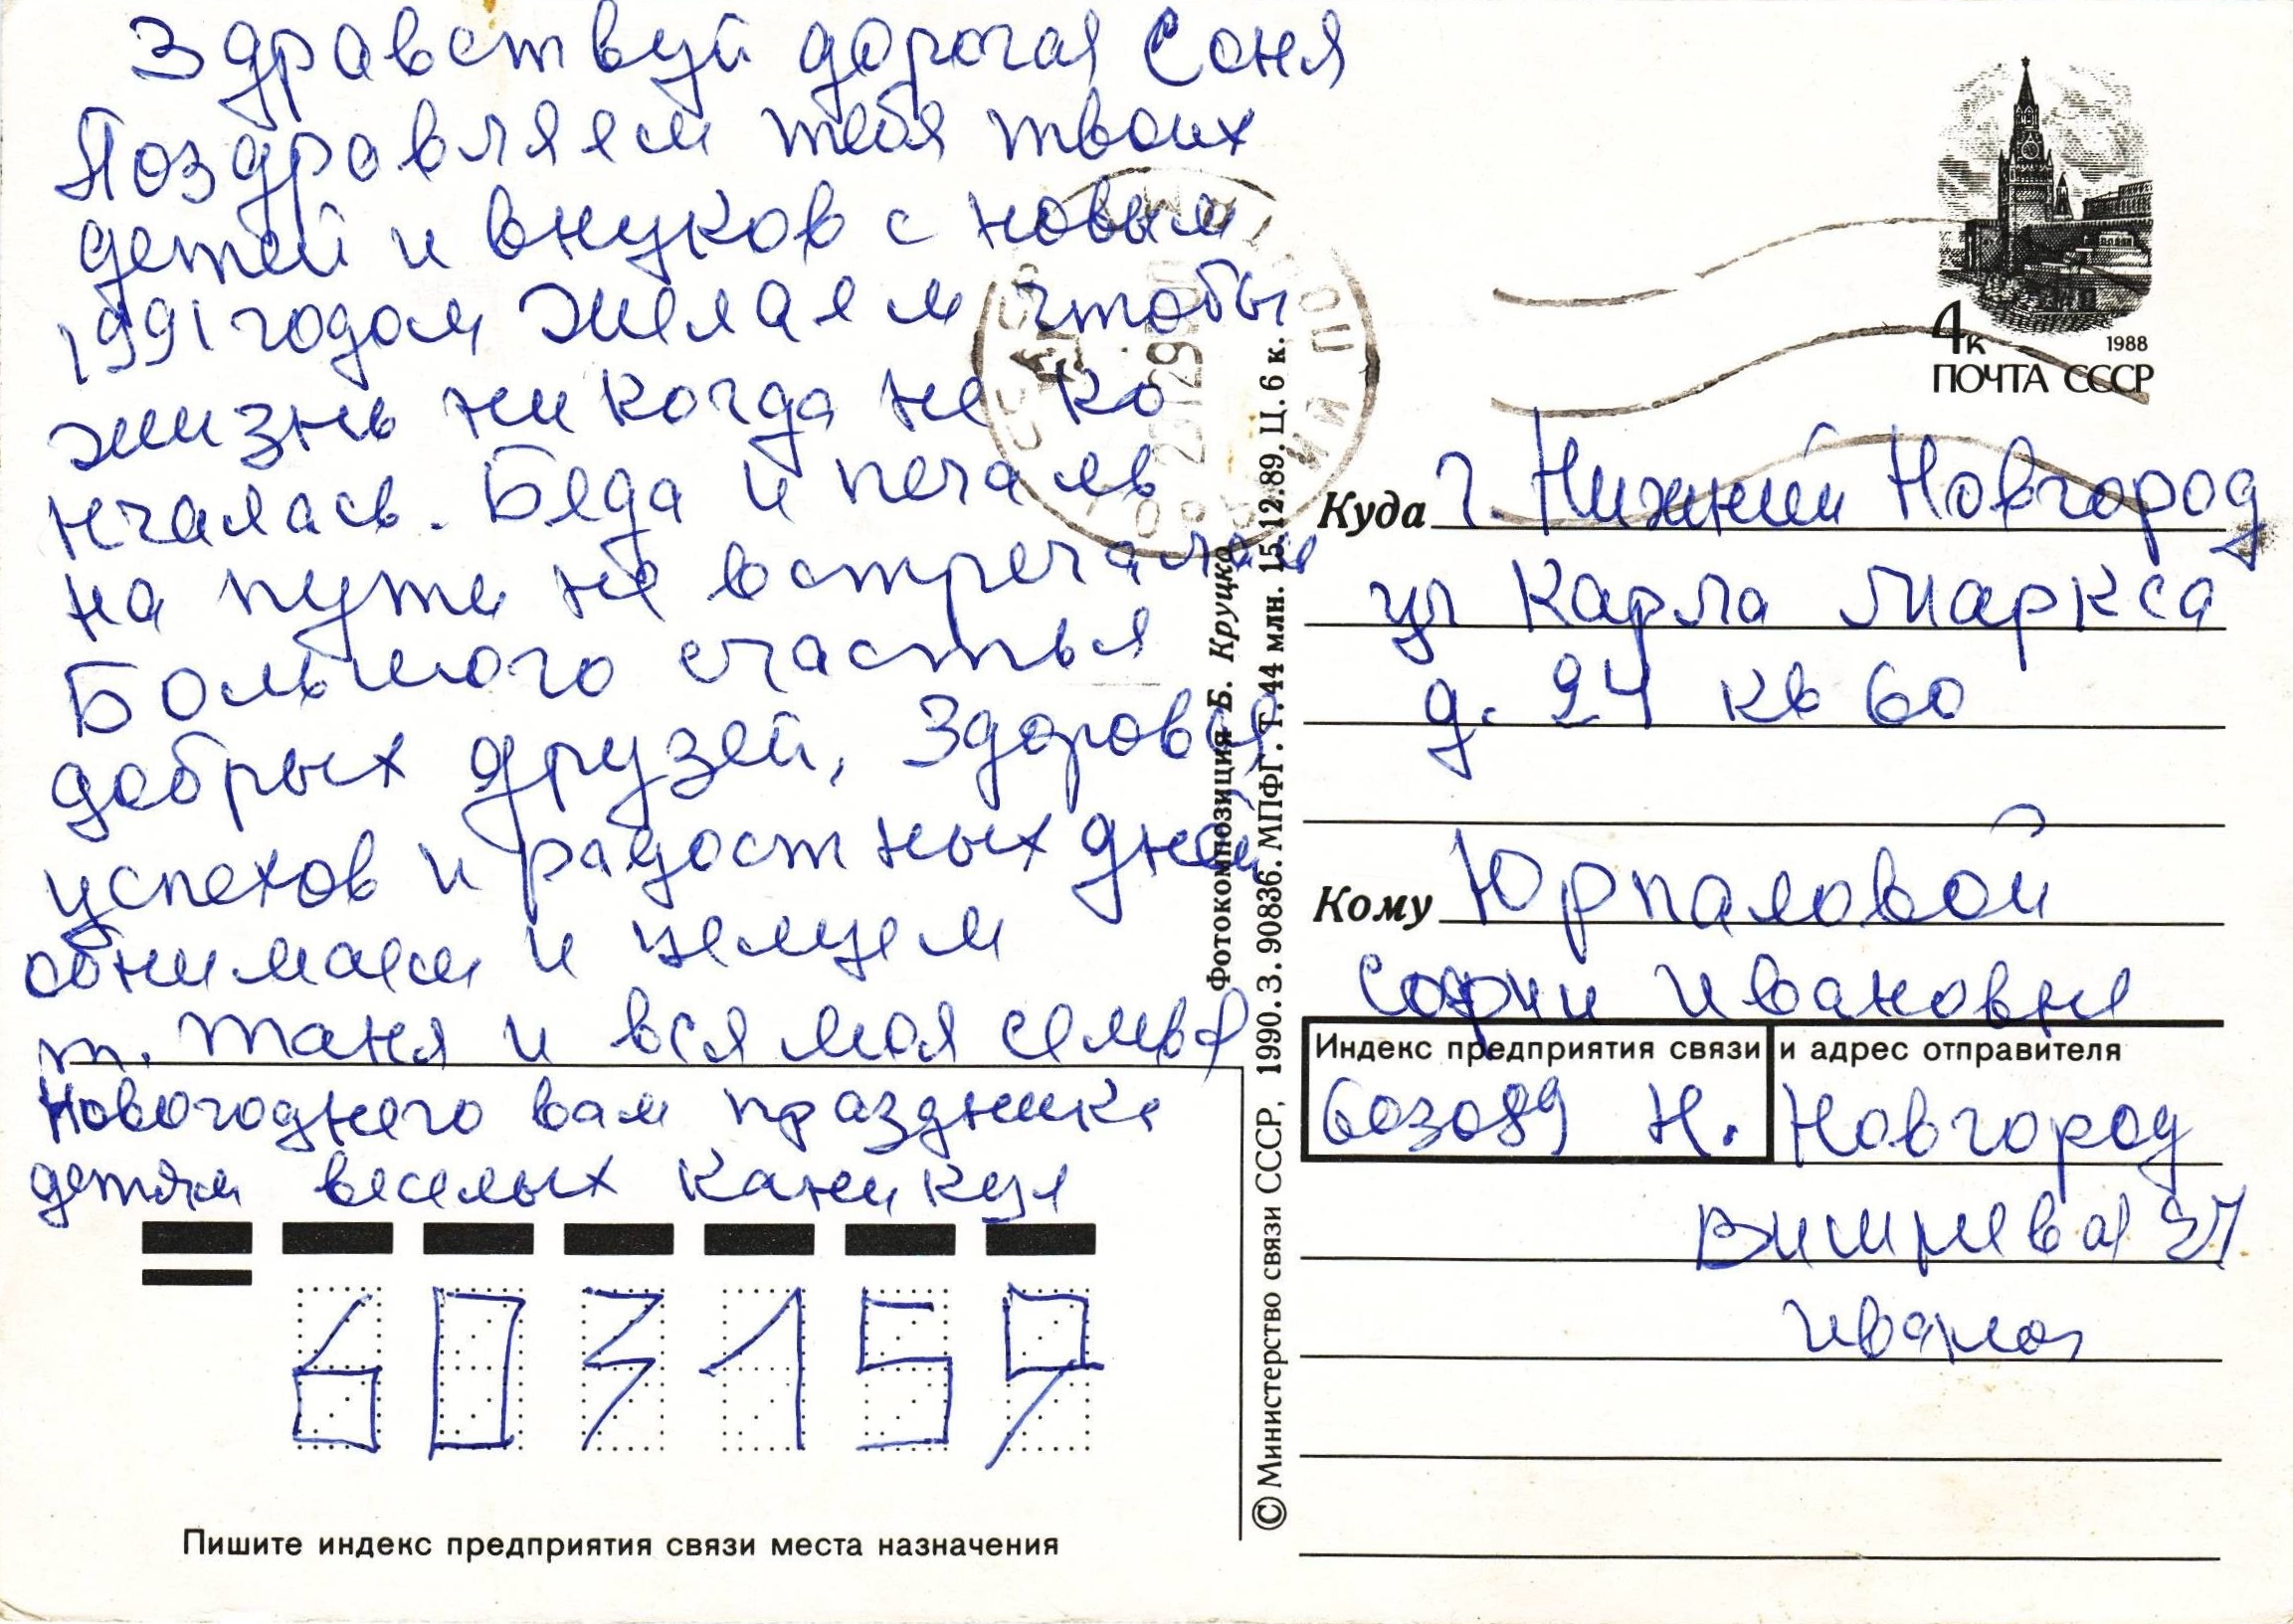 Здравствуй дорогая Соня
Поздравляем тебя твоих
детей и внуков с новым
1991 годом желаем чтобы
жизнь никогда не ко
нчалась. Беда и печаль
на пути не встречалась
Большого счастья
добрых друзей, Здоровья
успехов и радостных дней
обнимаем и целуем
т. Таня и вся моя семья
Новогоднего вам праздника
детям веселых каникул
603159
Пишите индекс предприятия связи места назначения
Фотокомпозиция Б. Круцко
© Министерство связи СССР, 1990. З. 90836. МПФГ. Т. 44 млн. 15.12.89. Ц. 6 к.
4к
1988
ПОЧТА СССР
Куда г. Нижний Новгород
ул Карла Маркса
д. 24 кв 60
Кому Юрпаловой
Софии Ивановне
Индекс предприятия связи и адрес отправителя
603089 Н. Новгород